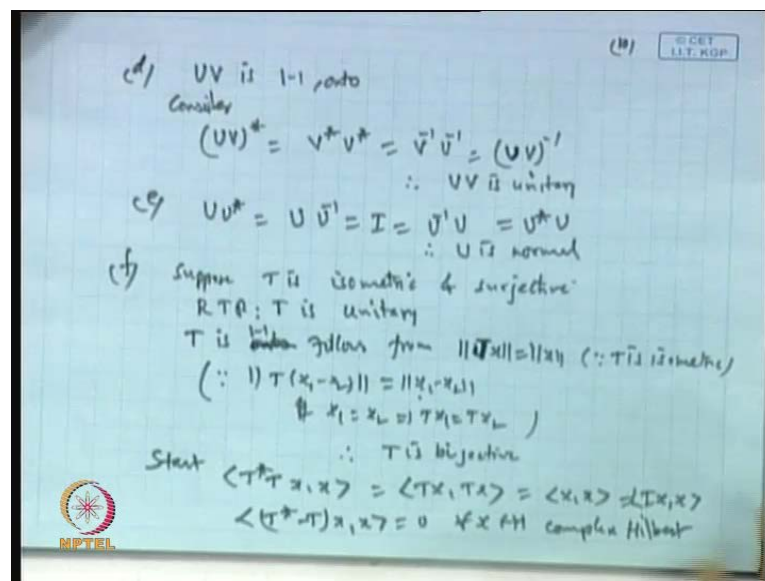 (10)
© CET
I.I.T. KGP
(d) UV is 1-1, onto
Consider
(UV)* = V*U* = V⁻¹U⁻¹ = (UV)⁻¹
∴ UV is unitary
(e) UU* = UU⁻¹ = I = U⁻¹U = U*U
∴ U is normal
(f) Suppose T is isometric & surjective
RTP: T is unitary
T is 1-1 follows from ||Tx|| = ||x|| (∵ T is isometric)
(∵ ||T(x₁-x₂)|| = ||x₁-x₂||
x₁ = x₂ ⇒ Tx₁ = Tx₂ )
∴ T is bijective
Start <T*Tx, x> = <Tx, Tx> = <x, x> = <Ix, x>
<(T*-T)x, x> = 0 ∀ x ∈ H complex Hilbert
NPTEL